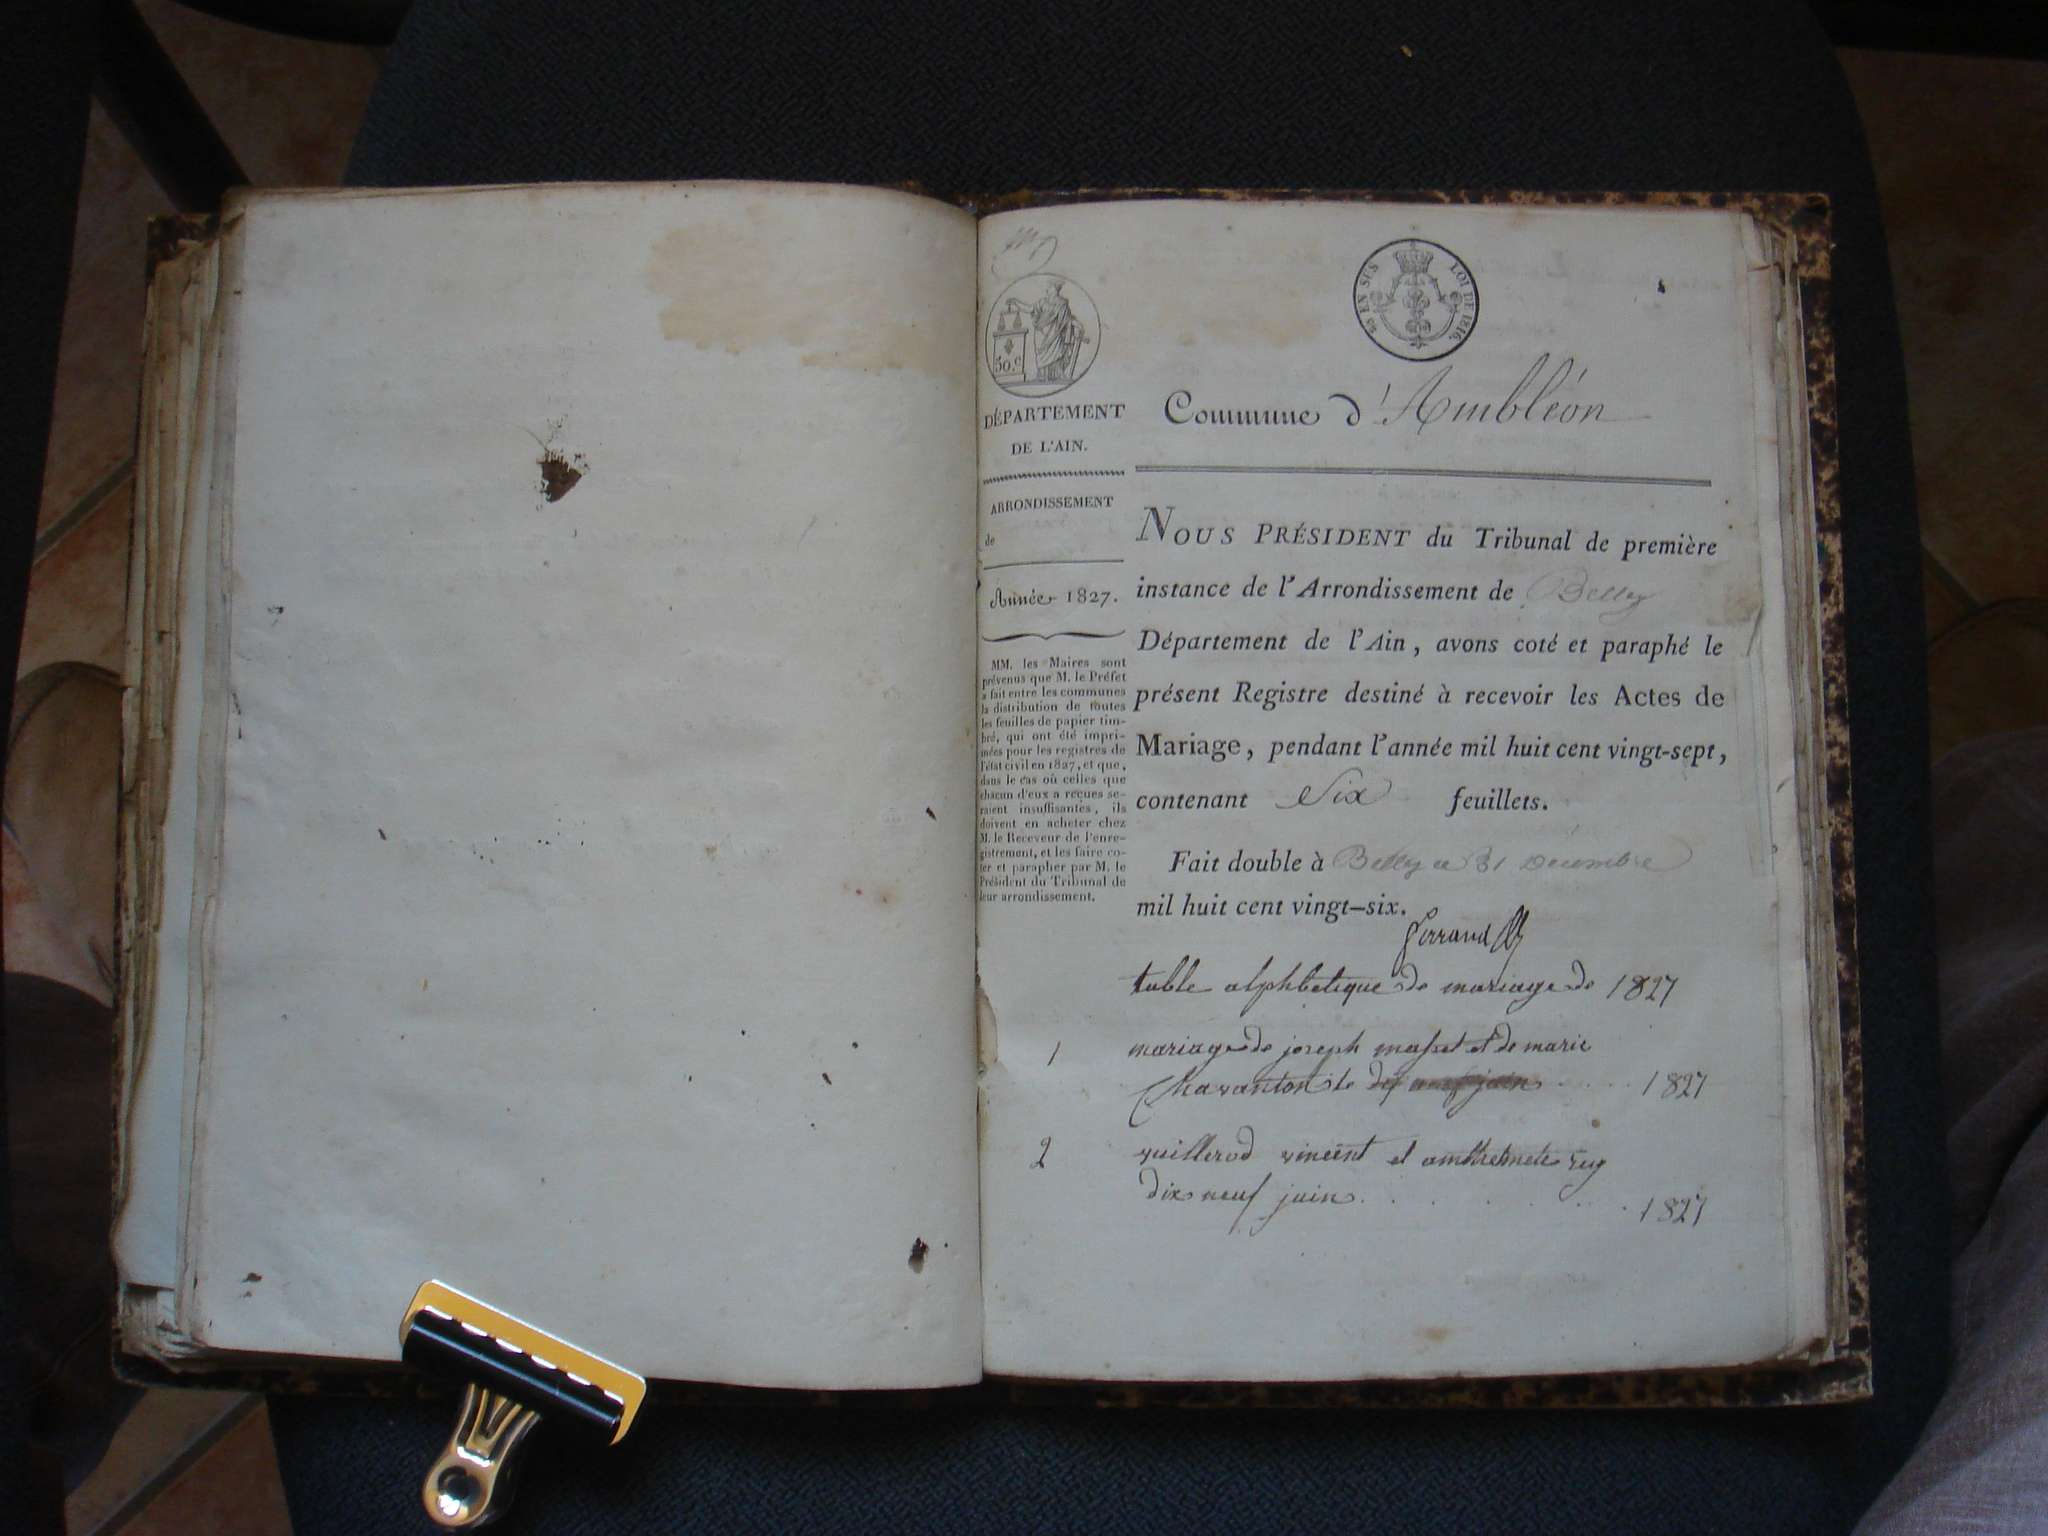 50.c
EN SUS
LOI DE 1816.
DÉPARTEMENT
DE L'AIN.
ARRONDISSEMENT
de
Année 1827.
MM. les Maires sont
prévenus que M. le Préfet
a fait entre les communes
la distribution de toutes
les feuilles de papier tim-
bré, qui ont été impri-
mées pour les registres de
l'état civil en 1827, et que,
dans le cas où celles que
chacun d'eux a reçues se-
raient insuffisantes, ils
doivent en acheter chez
M. le Receveur de l'enre-
gistrement, et les faire co-
ter et parapher par M. le
Président du Tribunal de
leur arrondissement.
Commune d'Ambléon
NOUS PRÉSIDENT du Tribunal de première
instance de l'Arrondissement de Belley
Département de l'Ain, avons coté et paraphé le
présent Registre destiné à recevoir les Actes de
Mariage, pendant l'année mil huit cent vingt-sept,
contenant Six feuillets.
Fait double à Belley ce 31 Decembre
mil huit cent vingt-six.
table alphbetique de mariage de 1827
1 mariage de joseph masset et de marie
Chavanton le 1827
2 vuillerod vincent et
dix neuf juin 1827